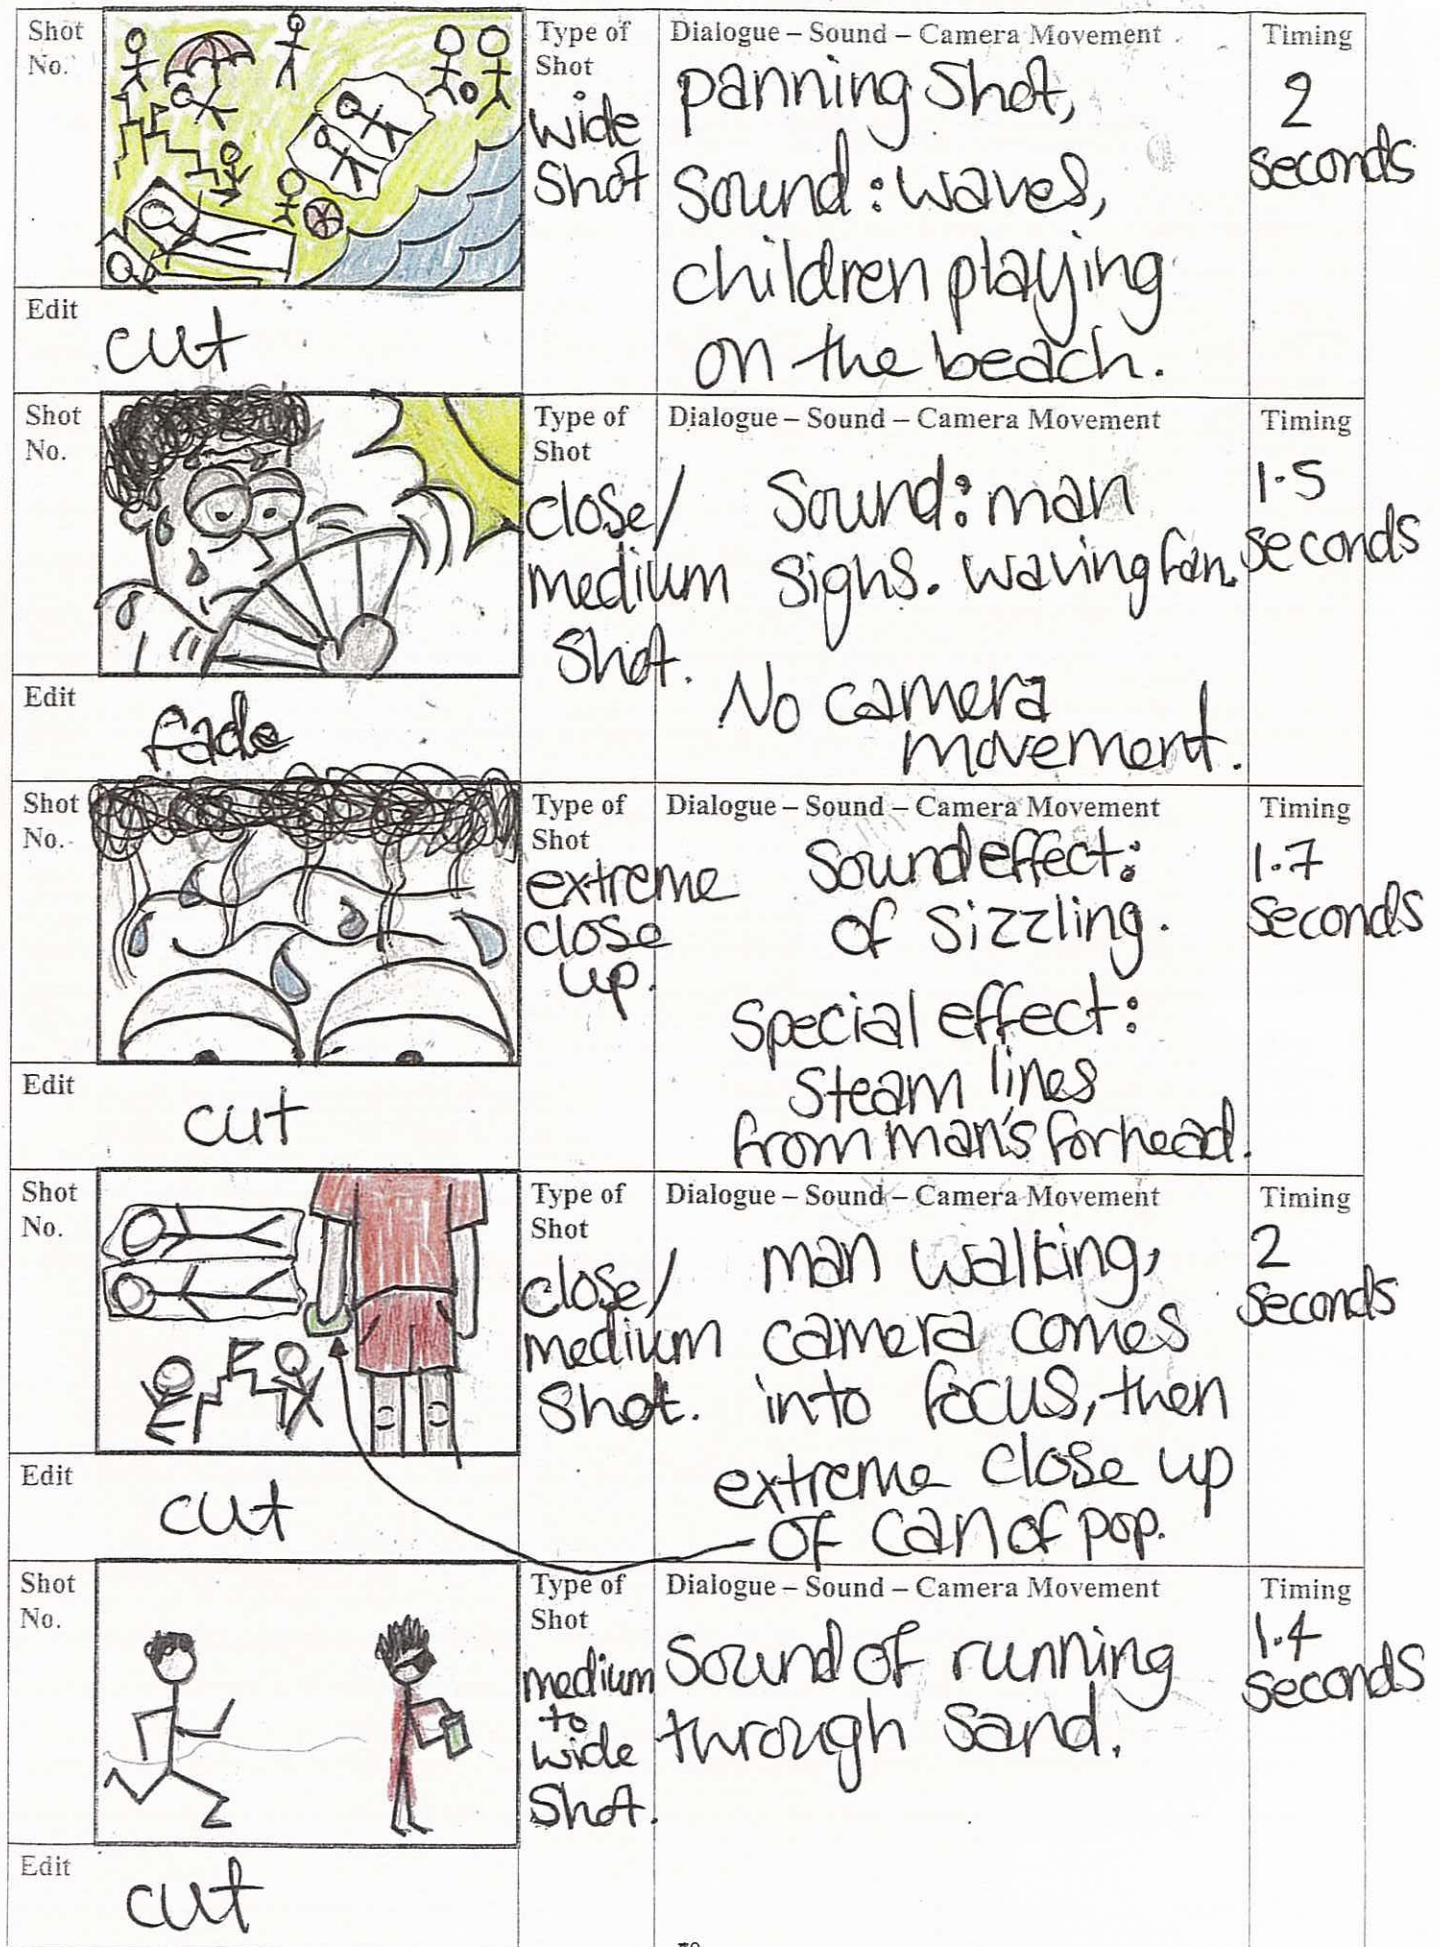 Shot
No.
Type of
Shot
wide
Shot
Dialogue – Sound – Camera Movement
panning Shot,
Sound: waves,
children playing
on the beach.
Timing
2
seconds
Edit
cut
Shot
No.
Type of
Shot
close/
medium
Shot.
Dialogue – Sound – Camera Movement
Sound: man
sighs. waving fan.
No camera
movement.
Timing
1.5
seconds
Edit
fade
Shot
No.
Type of
Shot
extreme
close
up.
Dialogue – Sound – Camera Movement
Sound effect:
of sizzling.
Special effect:
Steam lines
from man's forhead.
Timing
1.7
seconds
Edit
cut
Shot
No.
Type of
Shot
close/
medium
Shot.
Dialogue – Sound – Camera Movement
man walking,
camera comes
into focus, then
extreme close up
of can of pop.
Timing
2
seconds
Edit
cut
Shot
No.
Type of
Shot
medium
to
wide
Shot.
Dialogue – Sound – Camera Movement
Sound of running
through sand.
Timing
1.4
seconds
Edit
cut